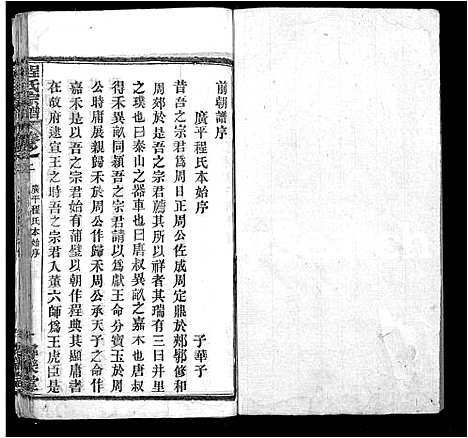 前朝譜序
廣平程氏本始序
子華子
昔吾之宗君爲周日正周公佐成周定鼎於郟鄏修和
周郊於是吾之宗君薦其所以祥者其瑞有三曰井里
之璞也曰泰山之器車也曰唐叔異畝之嘉禾也唐叔
得禾異畝同穎吾之宗君請以獻王命分寶玉於周
公時庸展親歸禾於周公作歸禾周公承天子之
嘉禾是具以吾之宗君始有蒲璧以朝作程典其庸書
在故府逮宣王之時吾之宗君入董六師爲王虎臣是
程氏宗譜
廣平程氏本始序